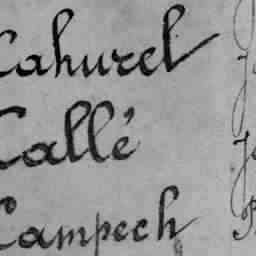 Cahurel
Callé
Campech